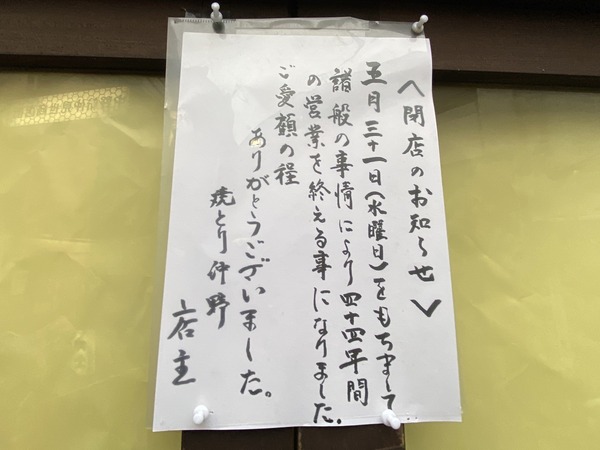 〈閉店のお知らせ〉
五月三十一日(水曜日)をもちまして
諸般の事情により四十四年間
の営業を終える事になりました。
ご愛顧の程
ありがとうございました。
焼とり仲野
店主